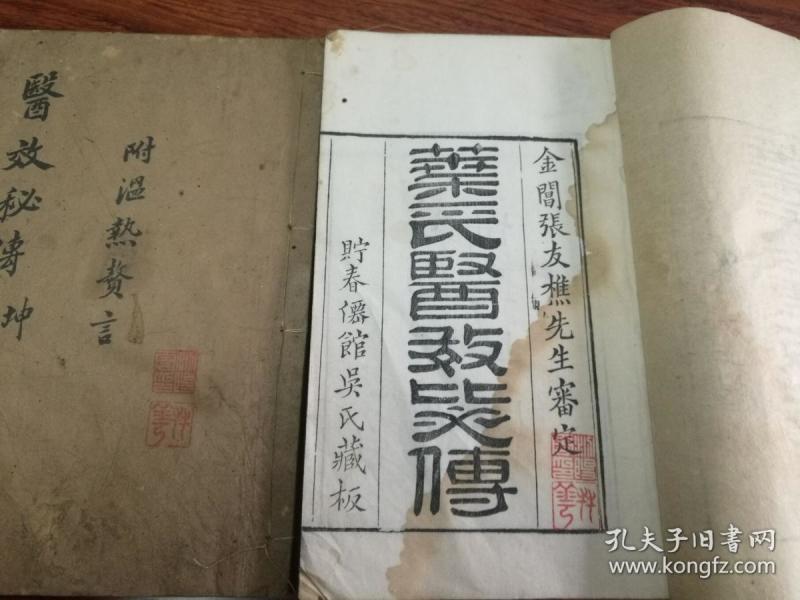 醫效秘傳坤
附溫熱贅言
金閶張友樵先生審定
葉氏醫效秘傳
貯春僊館吳氏藏板
孔夫子旧书网
www.kongfz.com